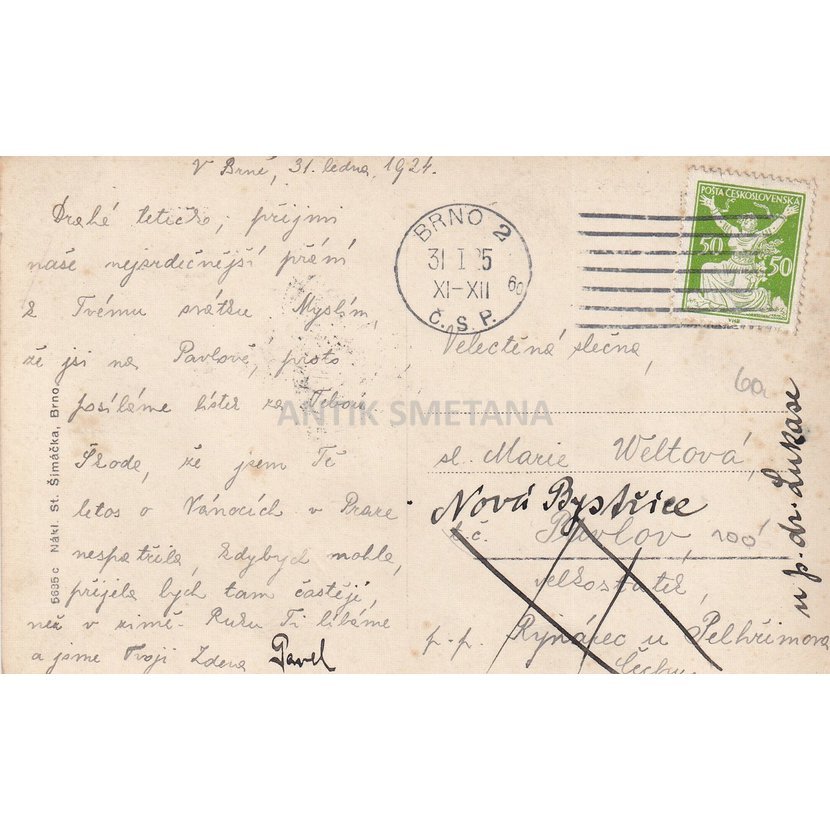 V Brně, 31. ledna 1924.
Drahé tetičko, přijmi
naše nejsrdečnější přání
k Tvému svátku. Myslím,
že jsi na Pavlově, proto
posíláme lístek za Tebou.
Škoda, že jsem Tě
letos o Vánocích v Praze
nespatřila, kdybych mohla,
přijela bych tam častěji,
než v zimě. Ruku Ti líbáme
a jsme Tvoji Zdena Pavel
5695 c Nákl. St. Šimáčka, Brno.
BRNO 2
31 I 25
XI-XII
6a
Č.S.P.
POŠTA ČESKOSLOVENSKÁ
50 50
Velectěná slečna,
6a
sl. Marie Weltová,
Nová Bystřice
č. Pavlov, 100
velkostatek,
p.p. Rynárec u Pelhřimova
Čechy
u p. dr. Lukase
ANTIK SMETANA